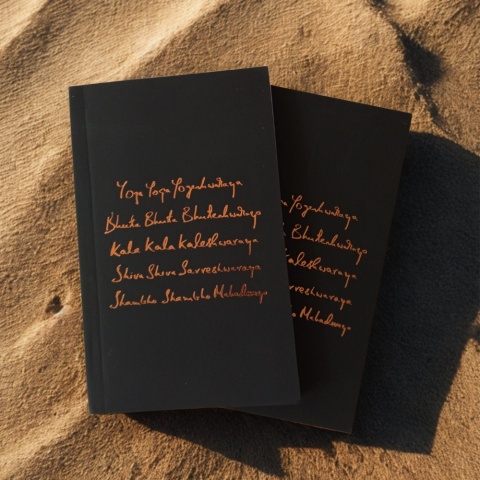 Yoga Yoga Yogeshwaraya
Bhuta Bhuta Bhuteshwaraya
Kala Kala Kaleshwaraya
Shiva Shiva Sarveshwaraya
Shambho Shambho Mahadevaya
Yogeshwaraya
Bhuteshwaraya
Kaleshwaraya
Mahadevaya